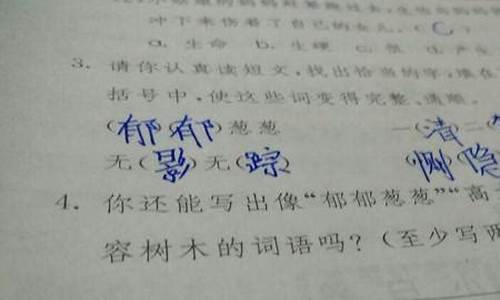 冲下来伤着了自己的女儿。(C)
a. 生命 b. 生硬 c.
3. 请你认真读短文,找出恰当的字,填在
括号中,使这些词变得完整、通顺。
(郁郁)葱葱 一(清)二(
无(影)无(踪) (恻隐
4. 你还能写出像“郁郁葱葱”“高
容树木的词语吗?(至少写两